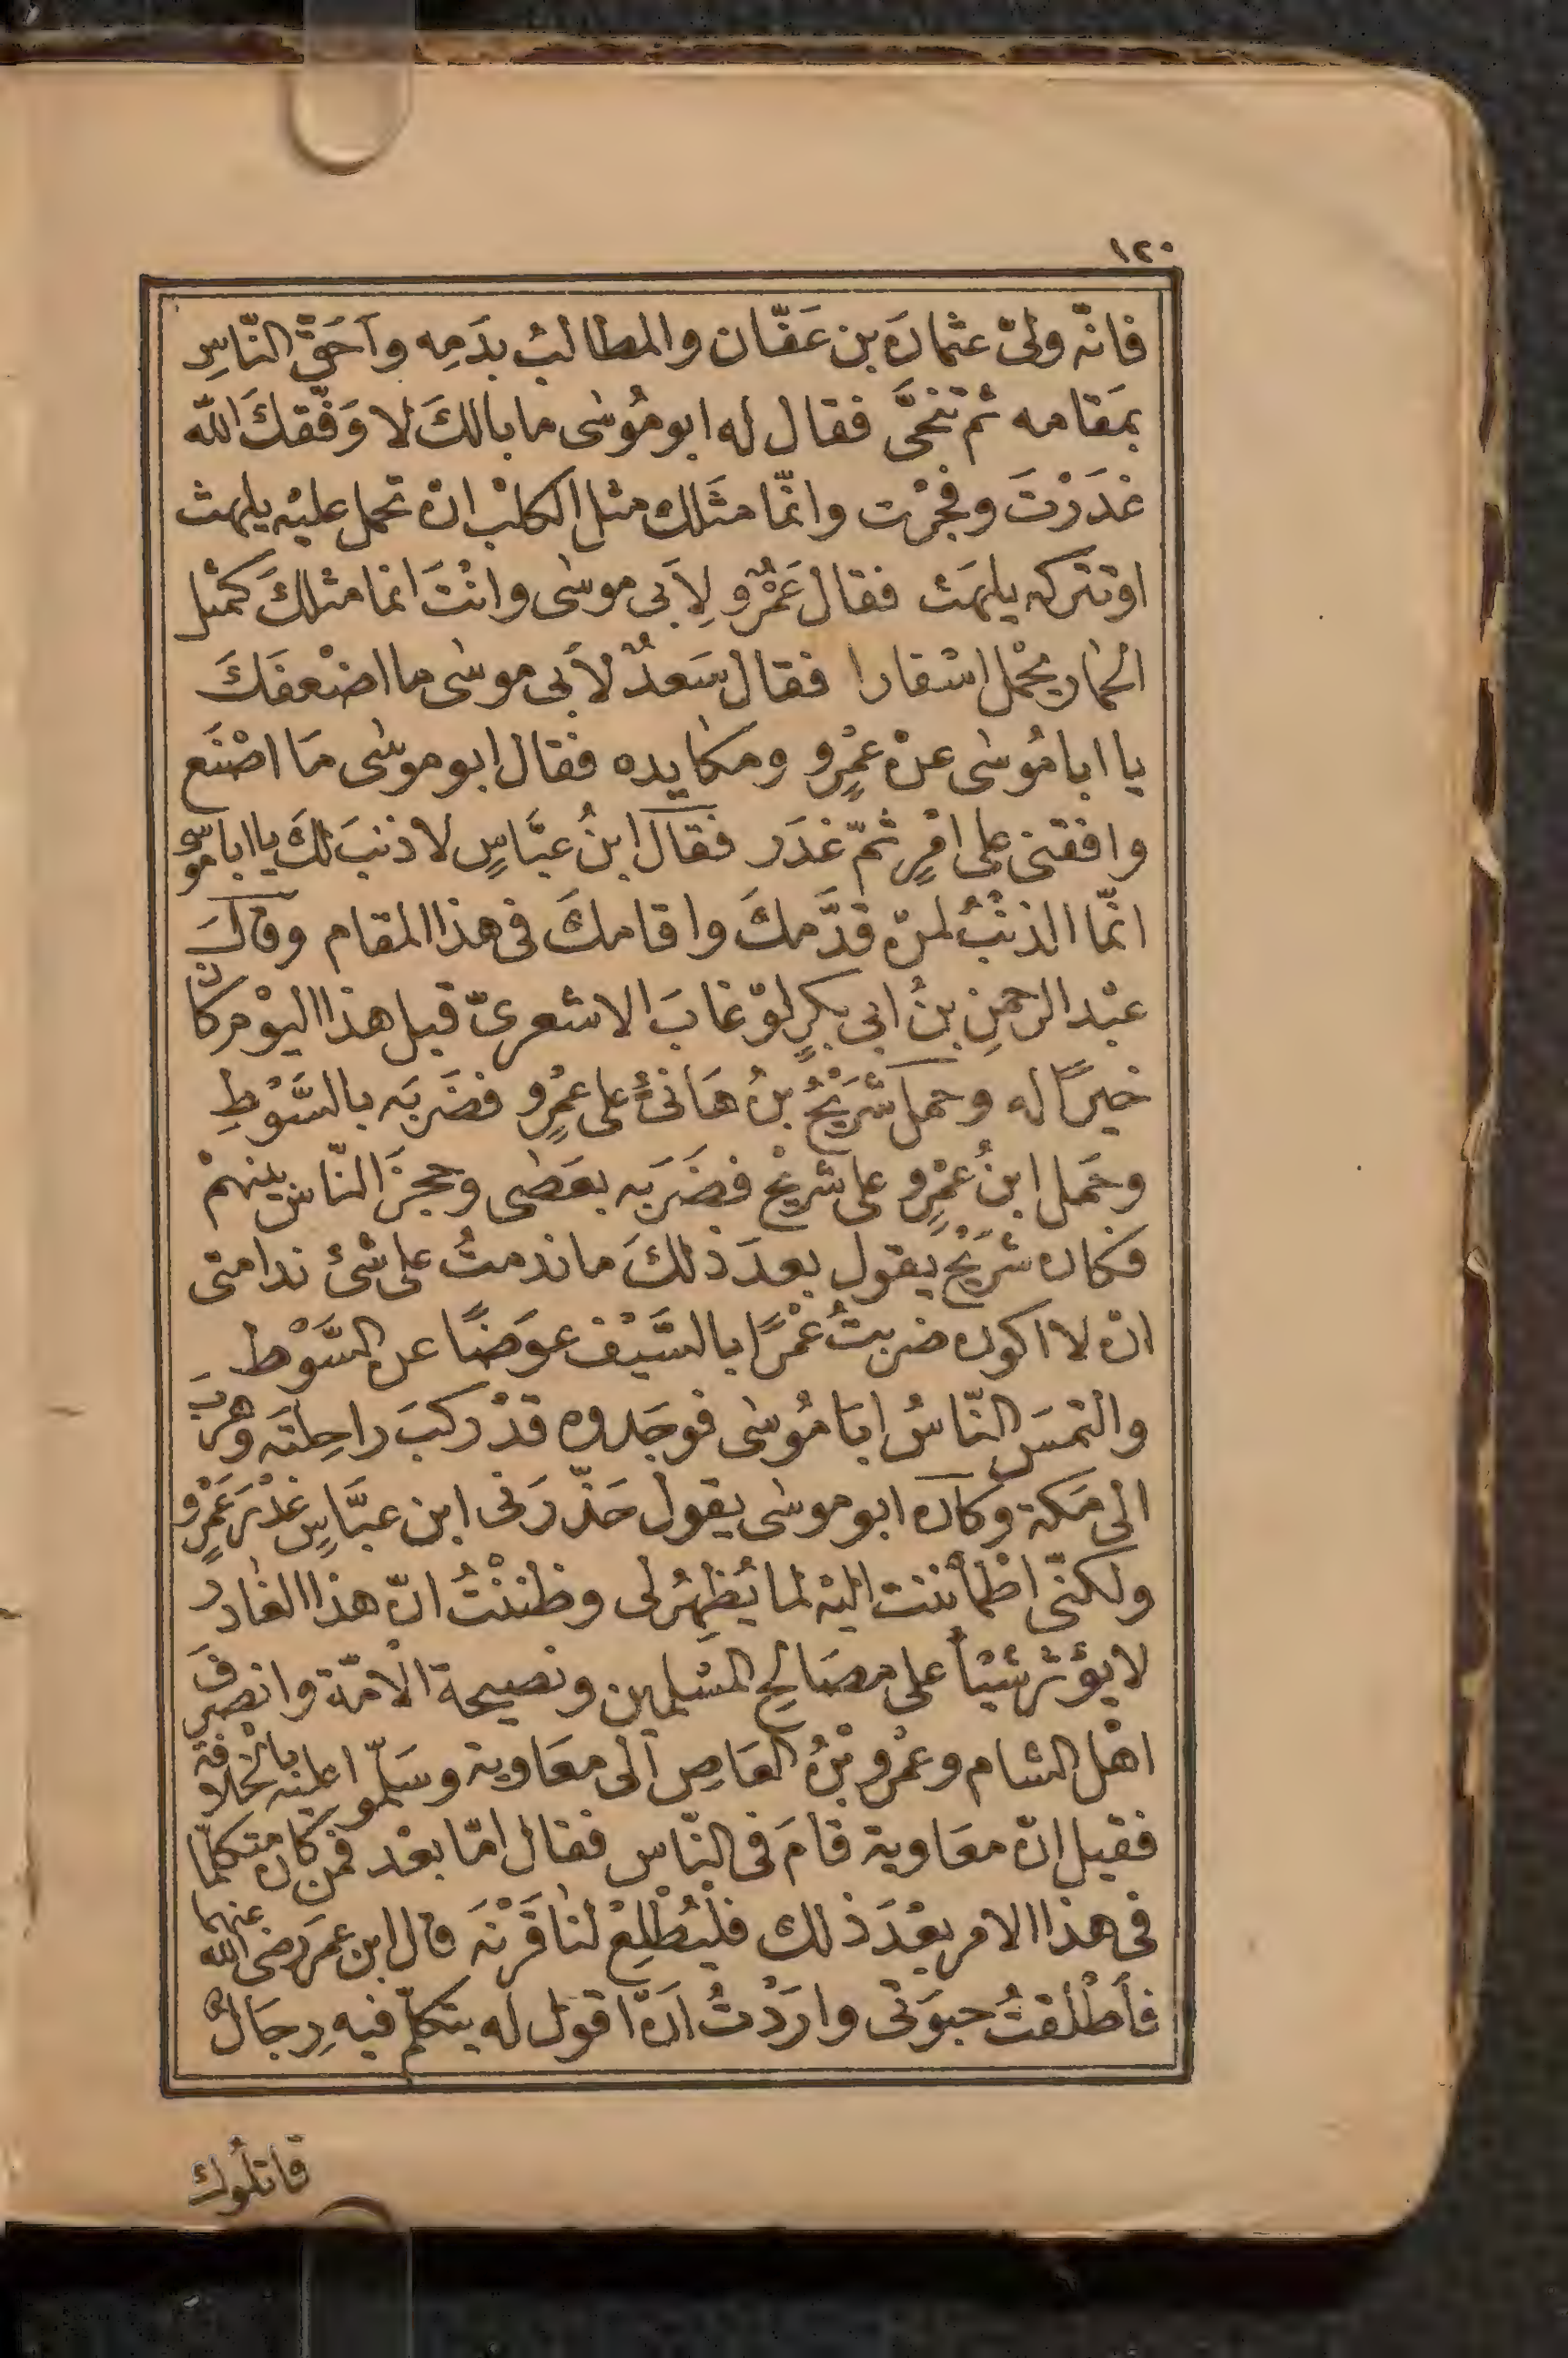 ١٢٠
فانّه ولىّ عثمانَ بن عَفّان والمطالبُ بدَمِه وآحَقّ النّاسِ
بمَقامه ثم تنحَّى فقال له ابو مُوسٰى ما بالكَ لا وَفّقكَ الله
غدَرْتَ وفجرْت وانّما مثَلك مثل الكلْب انْ تحمل عليْه يلهث
اوْ تتركه يلهَث فقال عَمْرٌو لِأَبى موسٰى وانْتَ انما مثلكَ كمثل
الحمار يحْمل اسْفارا فقال سَعدٌ لأبى موسٰى ما اضْعفَكَ
يا ابا مُوسٰى عنْ عمْرٍو ومكايده فقال ابو موسٰى مَا اصْنَع
وافقنى على امْرٍ ثمّ غدَر فقال ابنُ عبَّاسٍ لا ذنبَ لكَ يا ابا موسى
انّما الذنْبُ لمنْ قدَّمكَ واقامكَ فى هذا المقام وقالَ
عبْد الرحمنِ بنُ ابى بكرٍ لوْ غابَ الاشعرىّ قبل هذا اليوْم كان
خيرًا له وحمل شُرَيْحُ بنُ هَانئٍ على عمْرٍو فضَربَه بالسَّوْطِ
وحَمل ابنُ عمْرٍو على شريْح فضَرَبَه بعَصٰى وحجزَ النّاس بينهمْ
فكان شُرَيْحٌ يقول بعدَ ذٰلكَ ما ندمتُ على شئ ندامتى
انْ لا اكون ضربتُ عمْرًا بالسَّيْف عوَضًا عن السَّوْط
والتمسَ النّاسُ ابَا مُوسٰى فوجَدوه قدْ ركبَ راحِلتَه وهربَ
الى مَكة وكان ابو موسٰى يقول حَذّرَنى ابن عبَّاسٍ غدْرَ عَمْرٍو
ولكنّى اطْمأننت اليْه لما يُظهِرُ لى وظننْتُ انّ هذا الغادر
لا يؤثر شيْئاً على مصَالح المسْلمين ونصيحة الْامّة وانصرفَ
اهْل الشام وعمْرو بْنُ العَاصِ الٰى معَاوية وسَلّموا عليْه بالخلافة
فقيل انّ معَاوية قامَ فى النّاس فقال امّا بعْد فمن كان متكلما
فى هذا الامر بعْدَ ذلك فليُطْلِعْ لنا قَرْنَه قال ابن عمَر رضى الله عنهما
فأطْلقتُ حبوَتى وارَدْتُ اَنْ اقول له يتكلّم فيه رِجَالٌ
قاتلُوك